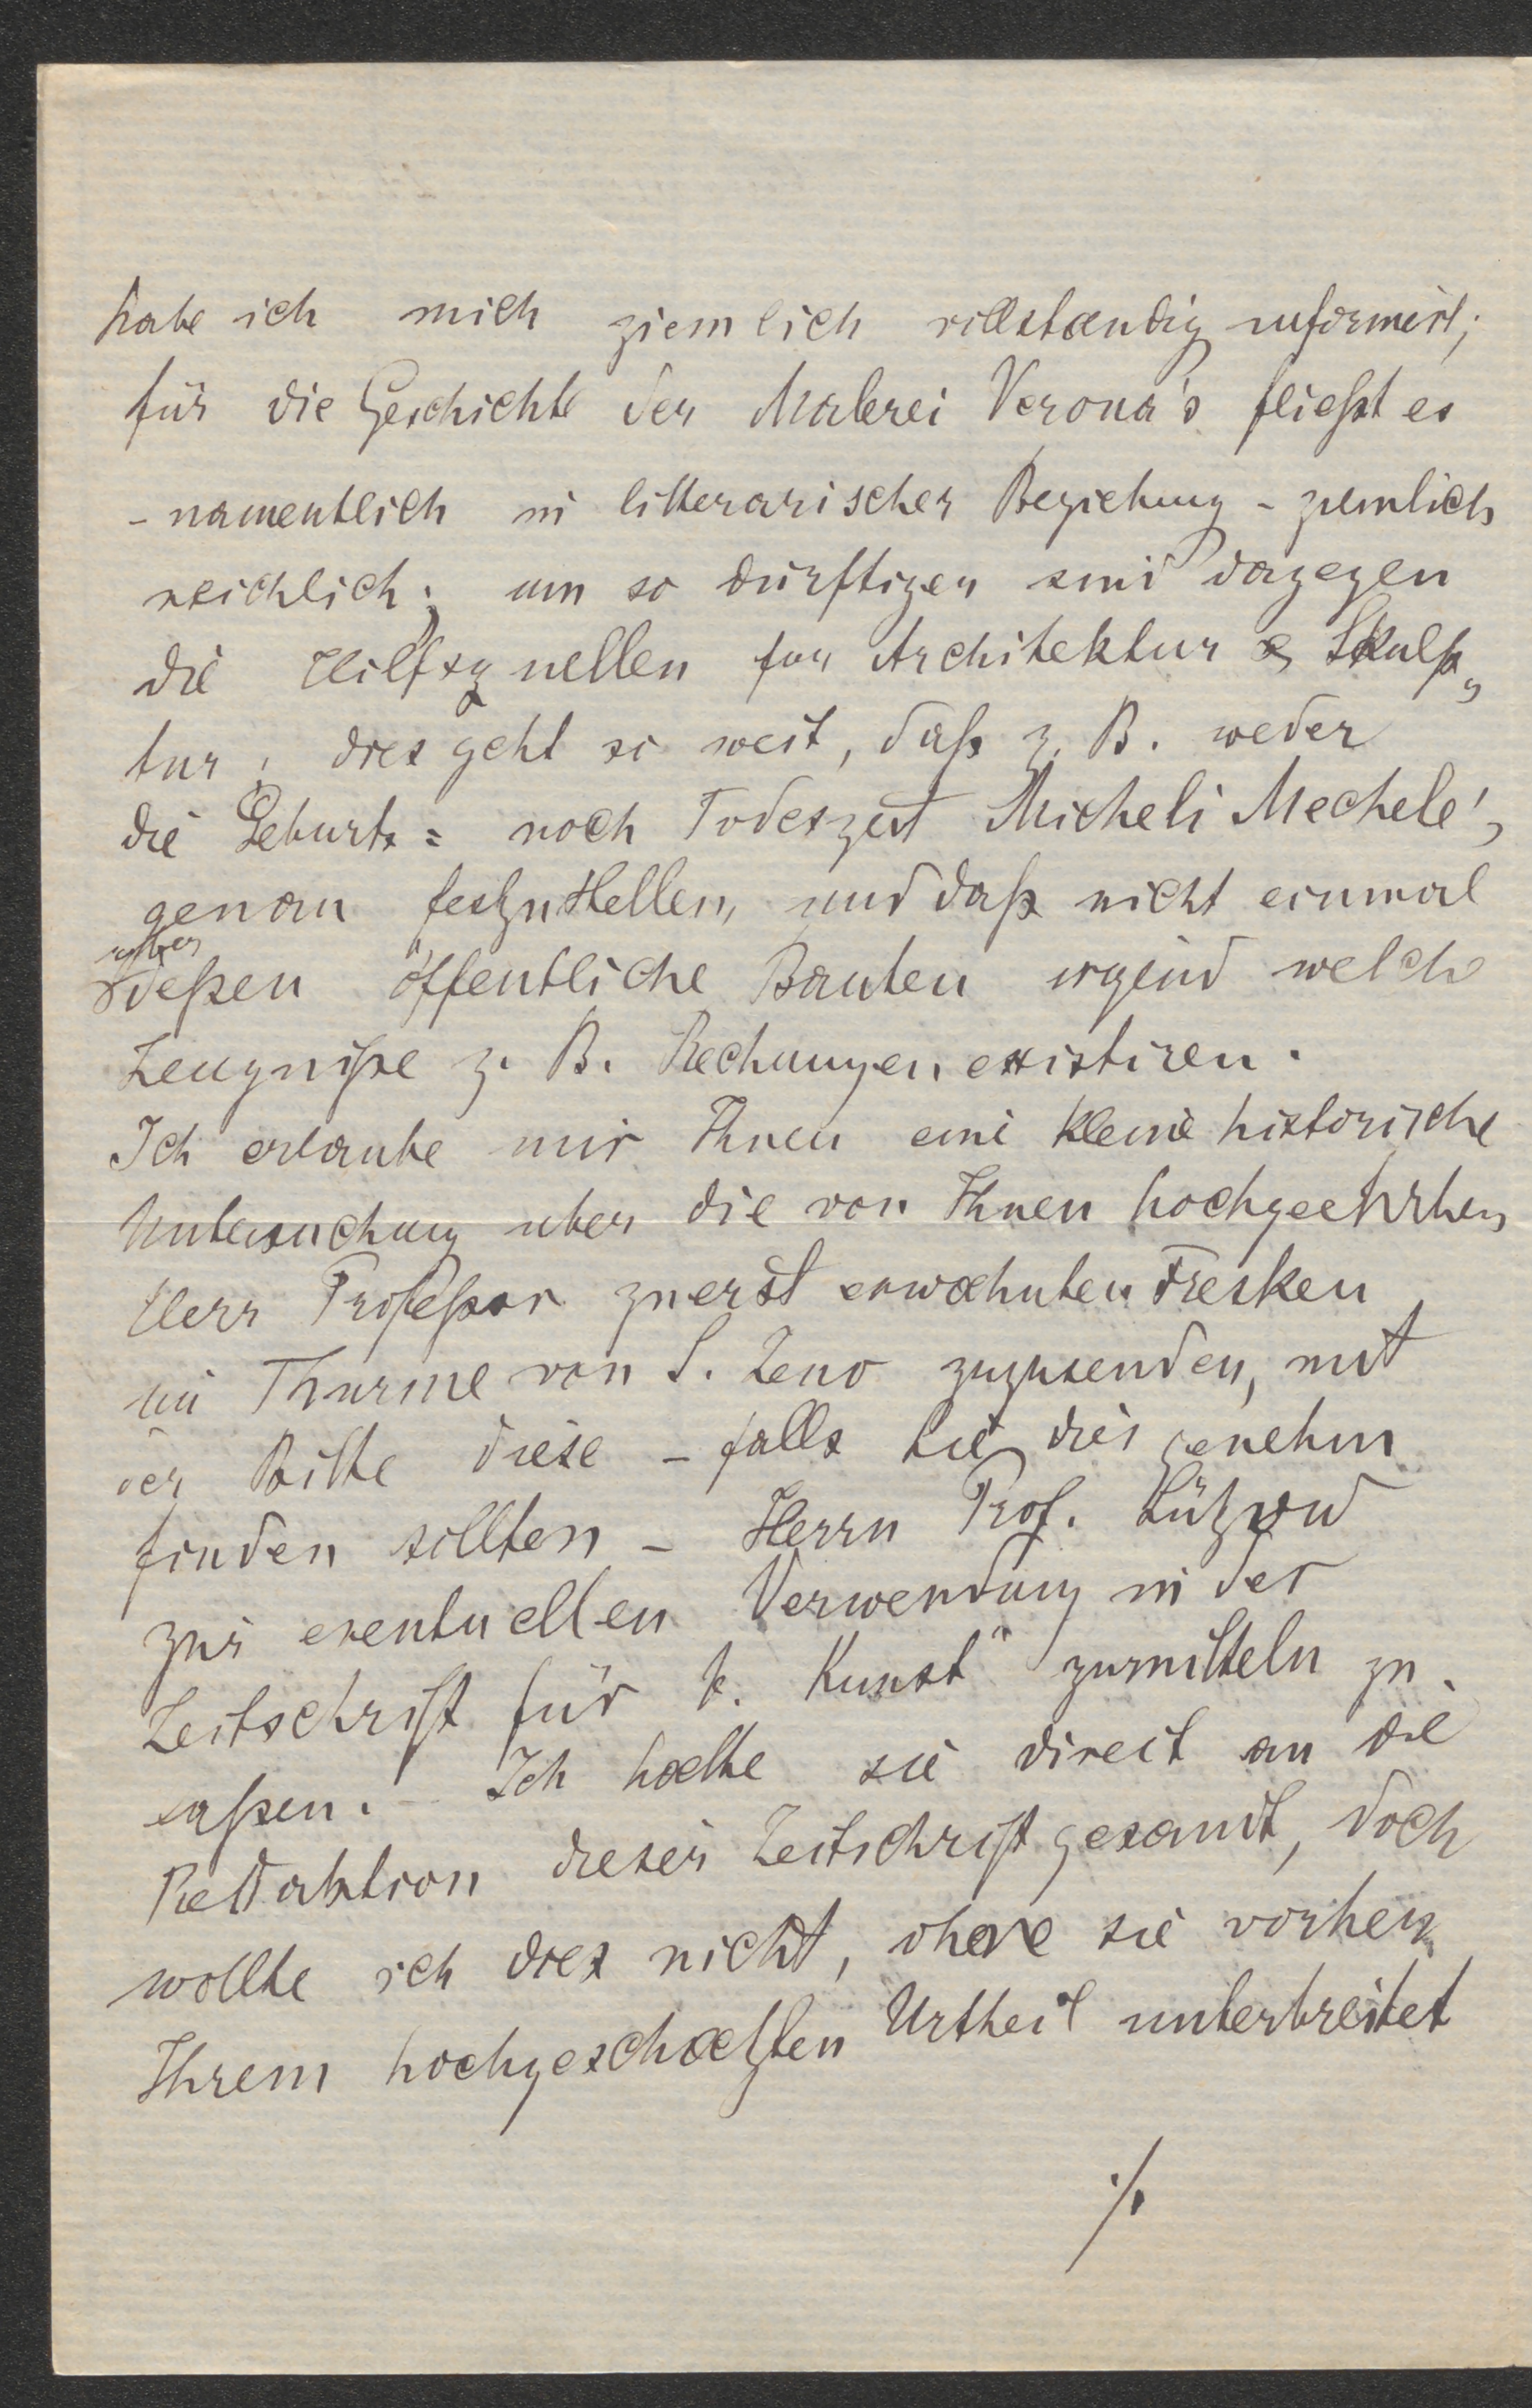 habe ich mich ziemlich vollstændig informirt;
für die Geschichte der Malerei Verona's fließt es
- namentlich in litterarischer Beziehung - ziemlich
reichlich; um so dürftiger sind dagegen
die Hilfsquellen für Architektur & Skulp„
tur; dies geht so weit, daß z. B. weder
die Geburts= noch Todeszeit Micheli Mechele's
genau festzustellen, und daß nicht einmal
über deßen öffentliche Bauten irgend welche
Zeugniße z. B. Rechnungen existiren.
Ich erlaube mir Ihnen eine kleine historische
Untersuchung über die von Ihnen hochgeehrter
Herr Profeßor zuerst erwæhnten Fresken
im Thurme von S. Zeno zuzusenden, mit
der Bitte diese - falls Sie dies genehm
finden sollten - Herrn Prof. Lützow
zur eventuellen Verwendung in der
Zeitschrift für b. Kunst" zumitteln zu
laßen. - Ich hætte sie direct an die
Redaktion dieser Zeitschrift gesandt, doch
wollte ich dies nicht, ohne sie vorher
Ihrem hochgeschætzten Urtheil unterbreitet
./.